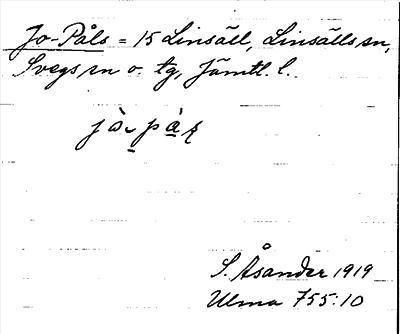 Jo-Påls = 15 Linsäll, Linsälls sn,
Svegs sn o. tg, Jämtl. l.
S. Åsander 1919
Ulma 755:10